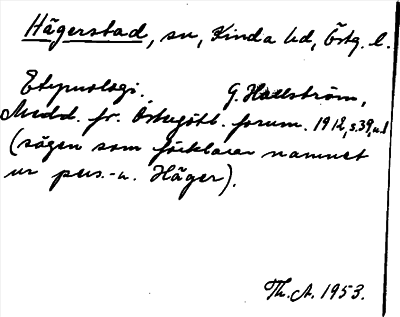 Hägerstad, sn, Kinda hd, Östg. l.
Etymologi. G. Hallström,
Medd. fr. Östergötl. fornm. 1912, s. 39, n. 1
(sägen som förklarar namnet
ur pers.-n. Häger).
Th. A. 1953.